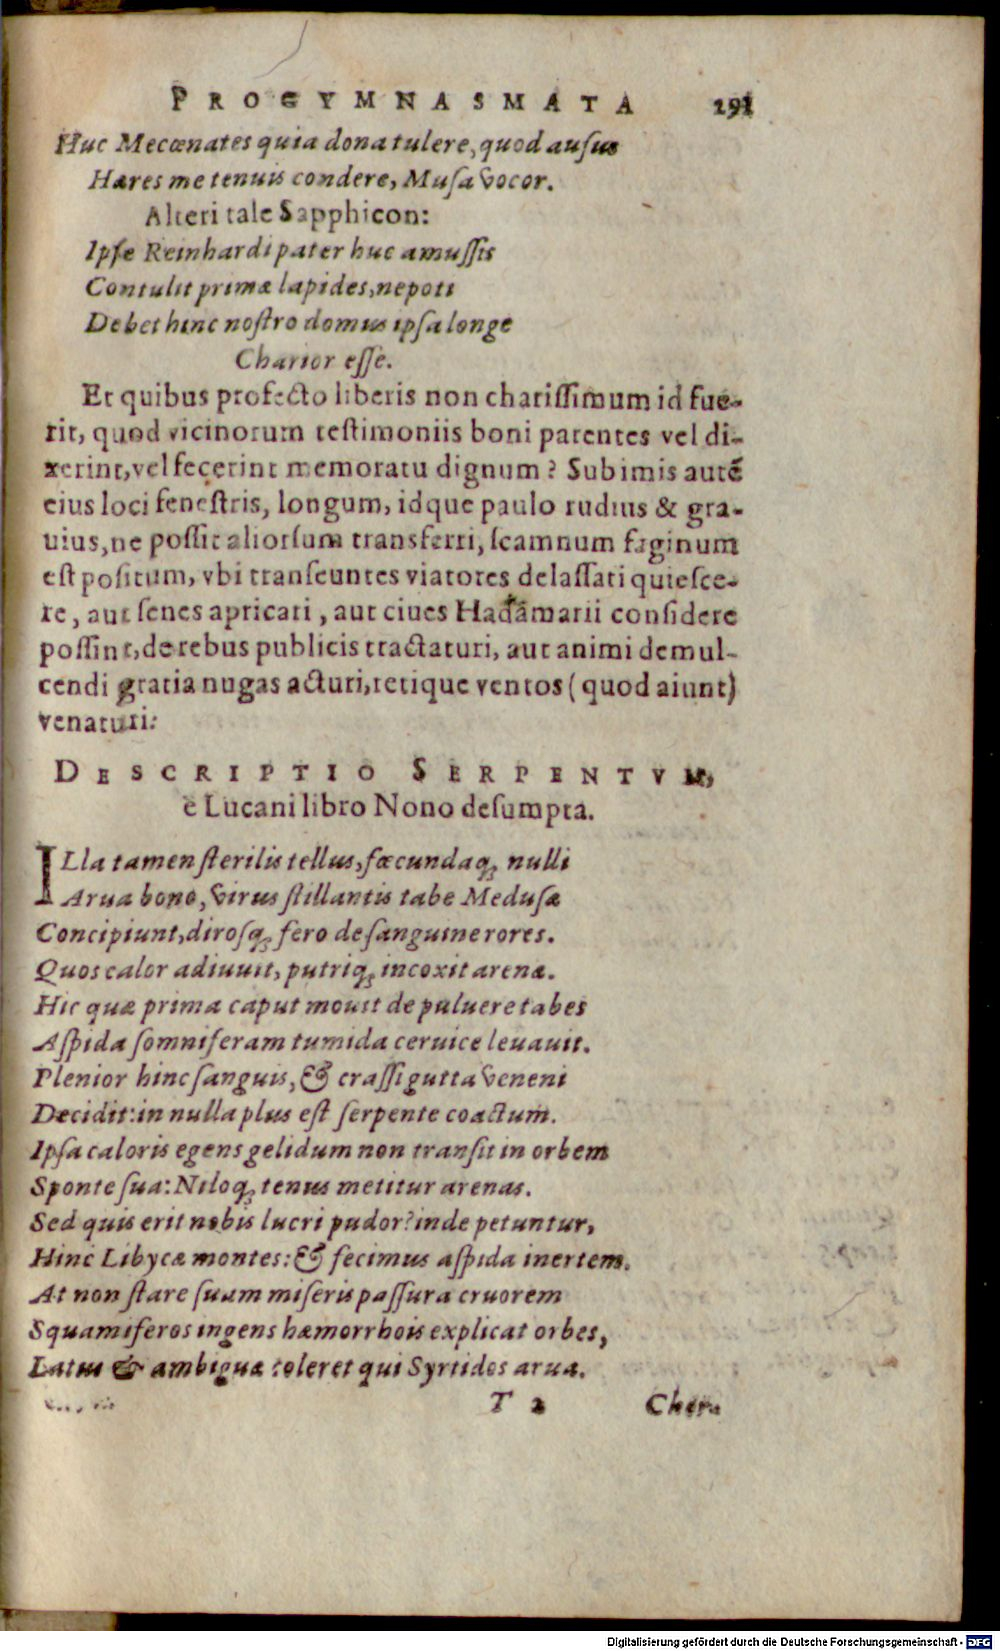 PROGYMNASMATA 291
Huc Mecœnates quia dona tulere, quod ausus
Hæres me tenuis condere, Musa vocor.
Alteri tale Sapphicon:
Ipse Reinhardi pater huc amuſſis
Contulit primæ lapides, nepoti
Debet hinc noſtro domus ipſa longe
Charior eſſe.
Et quibus profecto liberis non chariſſimum id fue-
rit, quod vicinorum teſtimoniis boni parentes vel di-
xerint, vel fecerint memoratu dignum? Sub imis autẽ
eius loci feneſtris, longum, idque paulo rudius & gra-
uius, ne poſſit aliorſum transferri, ſcamnum faginum
eſt poſitum, vbi tranſeuntes viatores delaſſati quieſce-
re, aut ſenes apricari, aut ciues Hadamarii conſidere
poſſint, de rebus publicis tractaturi, aut animi demul-
cendi gratia nugas acturi, retique ventos (quod aiunt)
venaturi:
DESCRIPTIO SERPENTVM,
e Lucani libro Nono deſumpta.
ILla tamen ſterilis tellus, fœcundaq; nulli
Arua bono, virus ſtillantis tabe Meduſæ
Concipiunt, diroſq; fero de ſanguine rores.
Quos calor adiuuit, putriq; incoxit arenæ.
Hic quæ prima caput mouit de puluere tabes
Aſpida ſomniferam tumida ceruice leuauit.
Plenior hinc ſanguis, & craſſi gutta veneni
Decidit: in nulla plus eſt ſerpente coactum.
Ipſa caloris egens gelidum non tranſit in orbem
Sponte ſua: Niloq; tenus metitur arenas.
Sed quis erit nobis lucri pudor? inde petuntur,
Hinc Libycæ montes: & fecimus aſpida inertem.
At non ſtare ſuum miſeris paſſura cruorem
Squamiferos ingens hæmorrhois explicat orbes,
Latus & ambiguæ toleret qui Syrtidos arua.
T 2 Cherſ
Digitalisierung gefördert durch die Deutsche Forschungsgemeinschaft - DFG